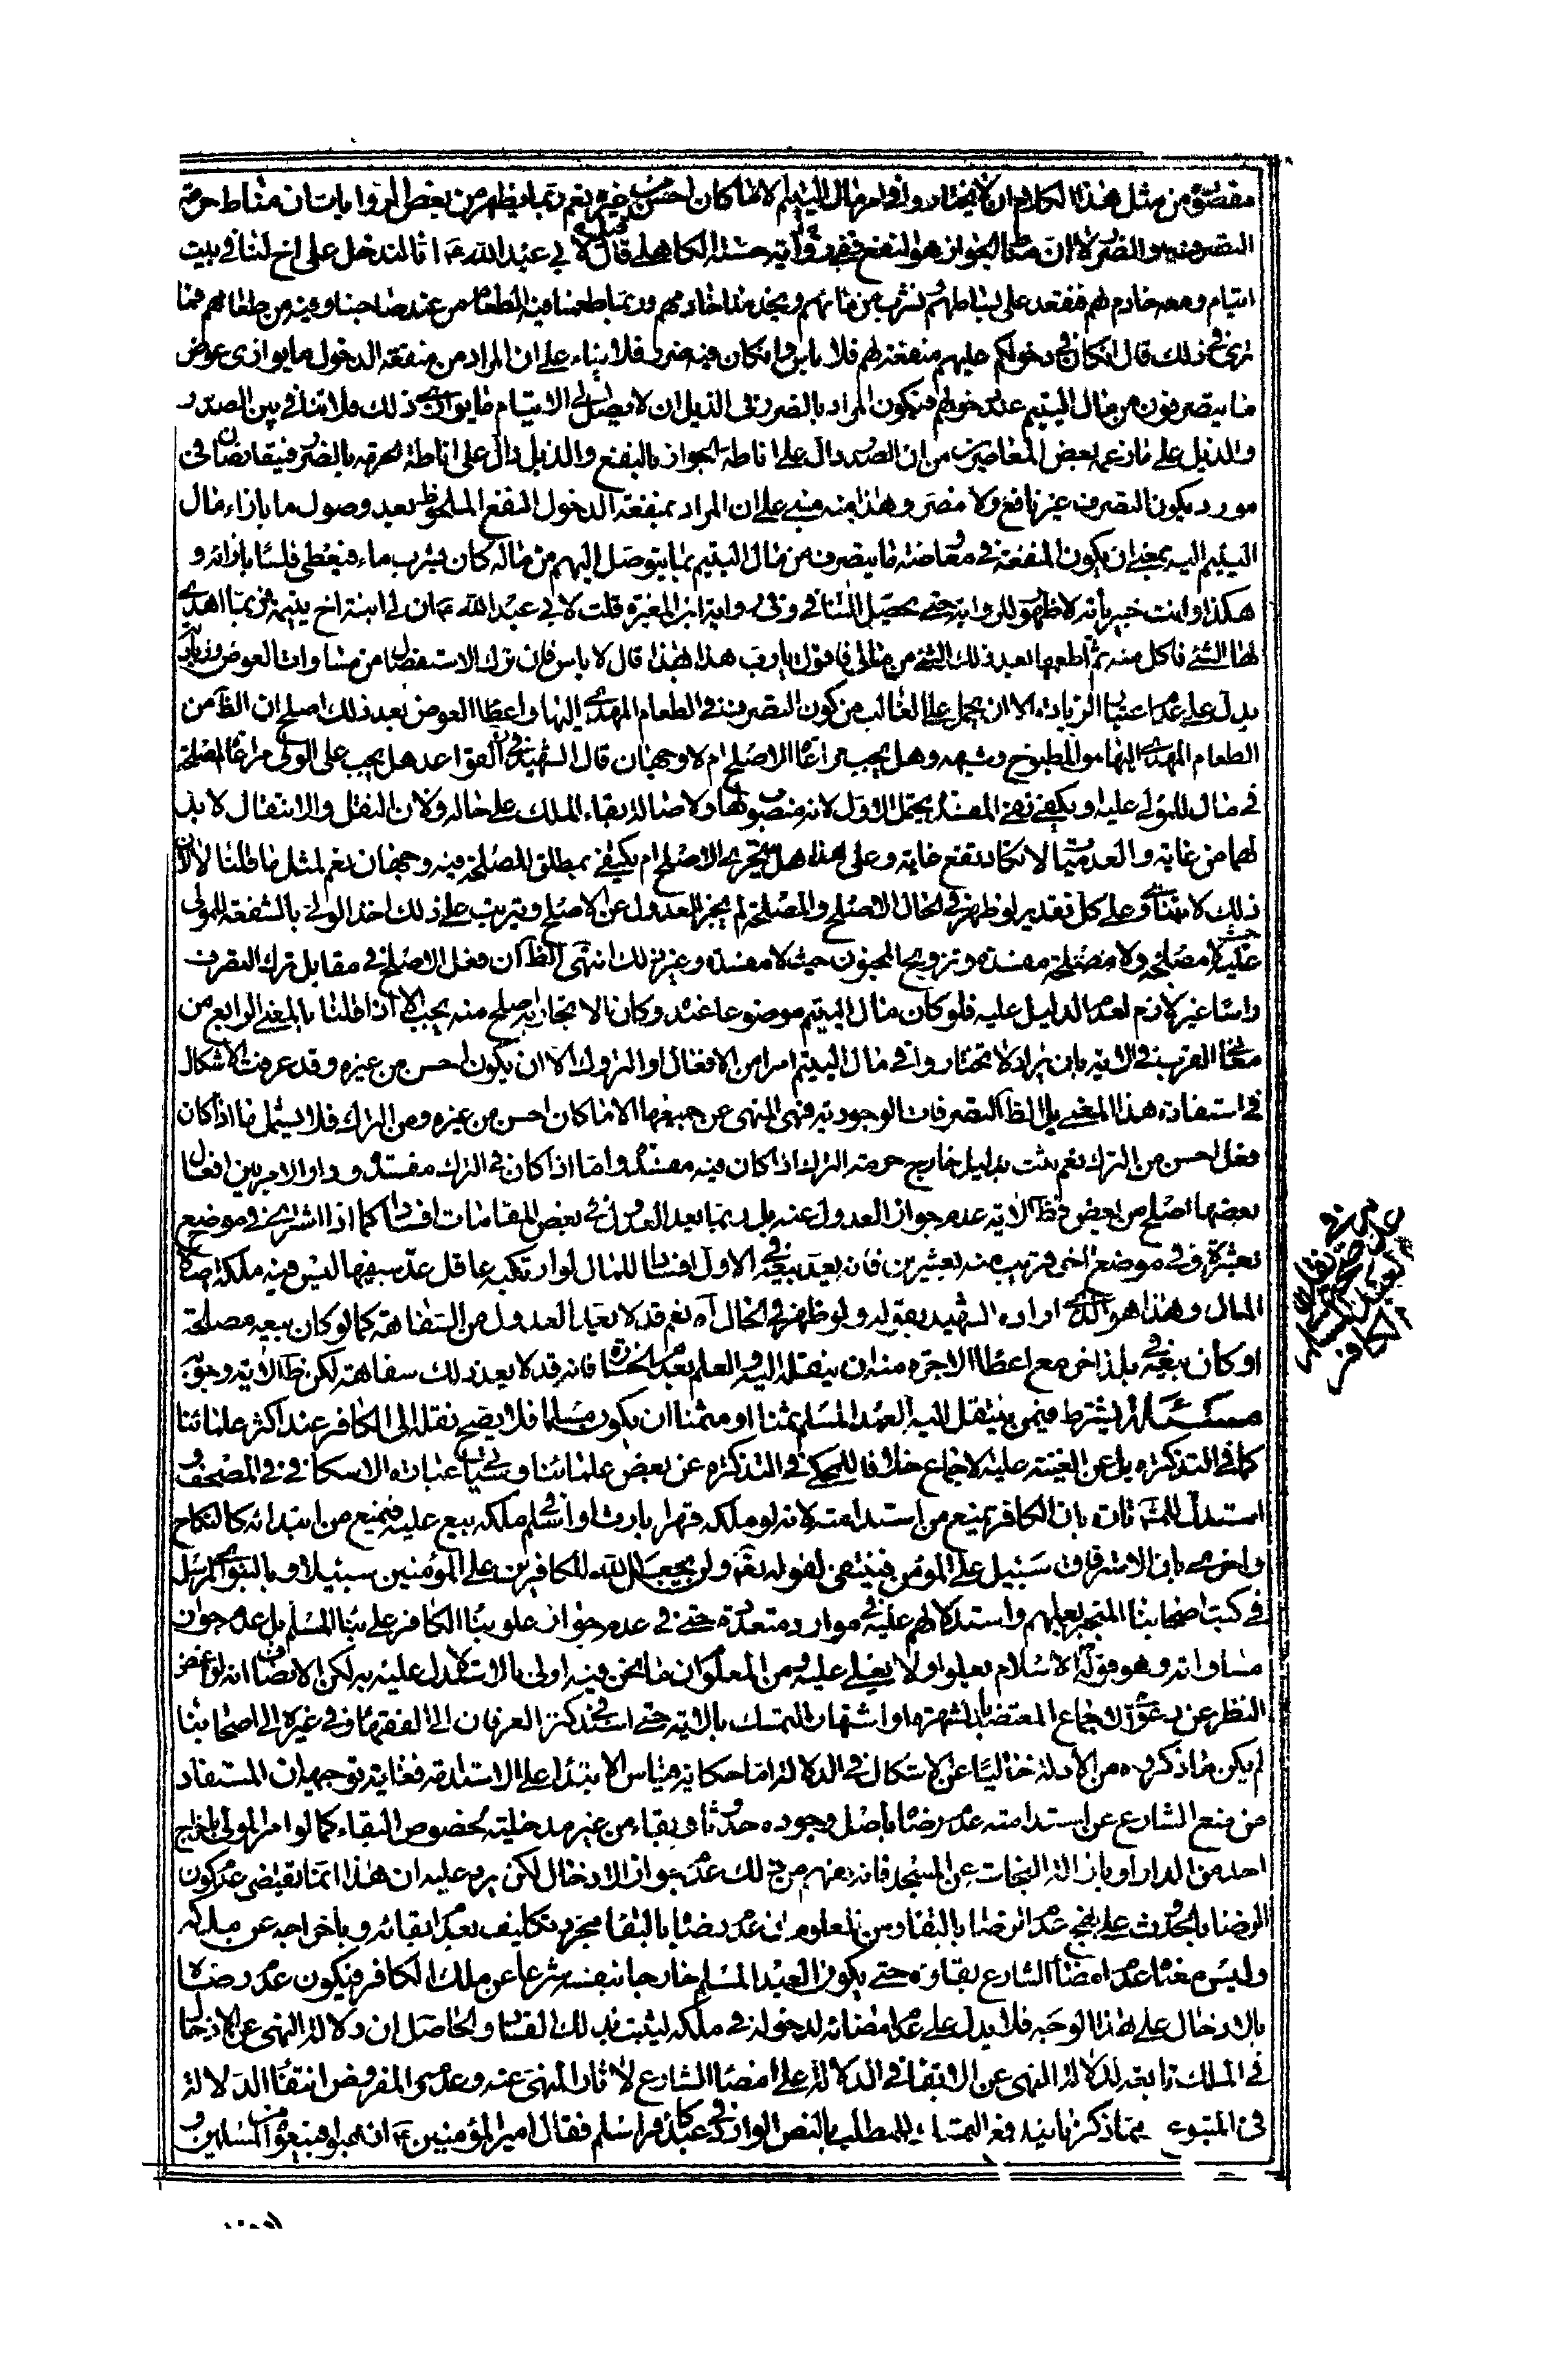 مقصوده من مثل هذا الكلام ان لا يختاروا في امر مال اليتيم الا ما كان احسن من غيره نعم ربما يظهر من بعض الروايات ان مناط حرمة
التصرف هو الضرر لا ان مناط الجواز هو النفع ففي رواية حسنة الكاهلي قال قيل لابي عبد الله ع انا لندخل على اخ لنا في بيت
ايتام ومعه خادم لهم فنقعد على بساطهم ونشرب من مائهم ويخدمنا خادمهم وربما طعمنا فيه الطعام من عند صاحبنا وفيه من طعامهم فما
ترى في ذلك قال ان كان في دخولكم عليهم منفعة لهم فلا باس وان كان فيه ضرر فلا بناء على ان المراد من منفعة الدخول ما يوازي عوض
ما يتصرفون من مال اليتيم عند دخولهم فيكون المراد بالضرر في الذيل ان لا يصل الى الايتام ما يوازي ذلك فلا تنافي بين الصدر
والذيل على ما زعمه بعض المعاصرين من ان الصدر دال على اناطة الجواز بالنفع والذيل دال على اناطة الحرمة بالضرر فيتعارضان في
مورد يكون التصرف غير نافع ولا مضر وهذا منه مبني على ان المراد بمنفعة الدخول النفع الملحوظ بعد وصول ما بازاء مال
اليتيم اليه بمعنى ان يكون المنفعة في معاوضة ما يتصرف من مال اليتيم بما يتوصل اليهم من ماله كان يشرب ماء فيعطي فلسا بازائه و
هكذا وانت خبير بانه لا ظهور للرواية حتى يحصل التنافي وفي رواية ابن المغيرة قلت لابي عبد الله ع ان لي ابنة اخ يتيمة فربما اهدي
لها الشئ فاكل منه ثم اطعمها بعد ذلك الشئ من مالي فاقول يا رب هذا بهذا قال لا باس فان ترك الاستفصال من مساوات العوض وزيادته
يدل على عدم اعتبار الزيادة الا ان يحمل على الغالب من كون التصرف في الطعام المهدى اليها واعطاء العوض بعد ذلك اصلح ان الظ من
الطعام المهدى اليها هو المطبوخ وشبهه وهل يجب مراعاة الاصلح ام لا وجهان قال الشهيد في القواعد هل يجب على الولي مراعاة المصلحة
في مال المولى عليه او يكفي نفي المفسدة يحتمل الاول لانه منصوب لها ولاصالة بقاء الملك على حاله ولان النقل والانتقال لا بد
لهما من غاية والعدميات لا تكاد تقع غاية وعلى هذا هل يتحرى الاصلح ام يكتفي بمطلق المصلحة فيه وجهان نعم لمثل ما قلنا لا لان
ذلك لا يتناهى وعلى كل تقدير لو ظهر في الحال الاصلح والمصلحة لم يجز العدول عن الاصلح ويترتب على ذلك اخذ الولي بالشفعة للمولى
عليه حيث لا مصلحة ولا مفسدة وتزويج المجنون حيث لا مفسدة وغير ذلك انتهى الظ ان فعل الاصلح في مقابل ترك التصرف
راسا غير لازم لعدم الدليل عليه فلو كان مال اليتيم موضوعا عنده وكان الاتجار به اصلح منه لم يجب الا اذا قلنا بالمعنى الرابع من
معاني القرب في الاية بان يراد لا تختاروا في مال اليتيم امرا من الافعال او التروك الا ان يكون احسن من غيره وقد عرفت الاشكال
في استفادة هذا المعنى بل الظ التصرفات الوجودية فهي المنهي عن جميعها الا ما كان احسن من غيره ومن الترك فلا يشمل ما اذا كان
فعل احسن من الترك نعم يثبت بدليل خارج حرمة الترك اذا كان فيه مفسدة واما اذا كان في الترك مفسدة ودار الامر بين افعال
بعضها اصلح من بعض فظ الاية عدم جواز العدول عنه بل ربما يعد العدول في بعض المقامات افسادا كما اذا اشترى في موضع
بعشرة وفي موضع اخر قريب منه بعشرين فانه يعد بيعه في الاول افسادا للمال لو ارتكبه عاقل عد سفيها ليس فيه ملكة اصلاح
المال وهذا هو الذي اراده الشهيد بقوله ولو ظهر في الحال اه نعم قد لا يعد العدول من السفاهة كما لو كان بيعه مصلحة
او كان بيعه في بلد اخر مع اعطاء الاجرة منه ان ينقله اليه والعلم بعدم الخسارة فانه قد لا يعد ذلك سفاهة لكن ظ الاية وجوبه
مسئلة يشترط فيمن ينتقل اليه العبد المسلم ثمنا او مثمنا ان يكون مسلما فلا يصح نقله الى الكافر عند اكثر علمائنا
كما في التذكرة بل عن الغنية عليه الاجماع خلافا للمحكي في التذكرة عن بعض علمائنا وسياتي عبارة الاسكافي في المصحف و
استدل للمشهور تارة بان الكافر يمنع من استدامته لانه لو ملكه قهرا بارث او اسلم في ملكه بيع عليه فيمنع من ابتدائه كالنكاح
واخرى بان الاسترقاق سبيل على المؤمن فينتفي لقوله تعالى ولن يجعل الله للكافرين على المؤمنين سبيلا وبالنبوي المرسل
في كتب اصحابنا المنجبر بعملهم واستدلالهم به في موارد متعددة حتى في عدم جواز علو بناء الكافر على بناء المسلم بل عدم جواز
مساواته وهو قوله ص الاسلام يعلو ولا يعلى عليه ومن المعلوم ان ما نحن فيه اولى بالاستدلال عليه به لكن الانصاف انه لو اغمض
النظر عن دعوى الاجماع المعتضدة بالشهرة واشتهار التمسك بالاية حتى اسند في كنز العرفان الى الفقهاء وفي غيره الى اصحابنا
لم يكن ما ذكروه من الادلة خاليا عن الاشكال في الدلالة اما حكاية قياس الابتداء على الاستدامة فغاية توجيهه ان المستفاد
من منع الشارع عن استدامته عدم رضاه باصل وجوده حدوثا وبقاء من غير مدخلية لخصوص البقاء كما لو امر المولى باخراج
احد من الدار او بازالة النجاسة عن المسجد فانه يفهم من ذلك عدم جواز الادخال لكن يرد عليه ان هذا انما يقتضي عدم كون
الرضا بالحدوث على نهج عدم الرضا بالبقاء ومن المعلوم ان عدم رضاه بالبقاء مجرد تكليف بعدم ابقائه وباخراجه عن ملكه
وليس معناه عدم امضاء الشارع بقاءه حتى يكون العبد المسلم خارجا بنفسه شرعا عن ملك الكافر فيكون عدم رضاه
بالادخال على هذا الوجه فلا يدل على عدم امضائه لدخوله في ملكه ليثبت بذلك الفساد والحاصل ان دلالة النهي عن الادخال
في الملك تابعة لدلالة النهي عن الابقاء في الدلالة على امضاء الشارع لاثار المنهي عنه وعدمه والمفروض انتفاء الدلالة
في المتبوع ومما ذكرنا يندفع التمسك للمطلب بالنص الوارد في عبد كافر اسلم فقال امير المؤمنين ع اذهبوا فبيعوه من المسلمين و